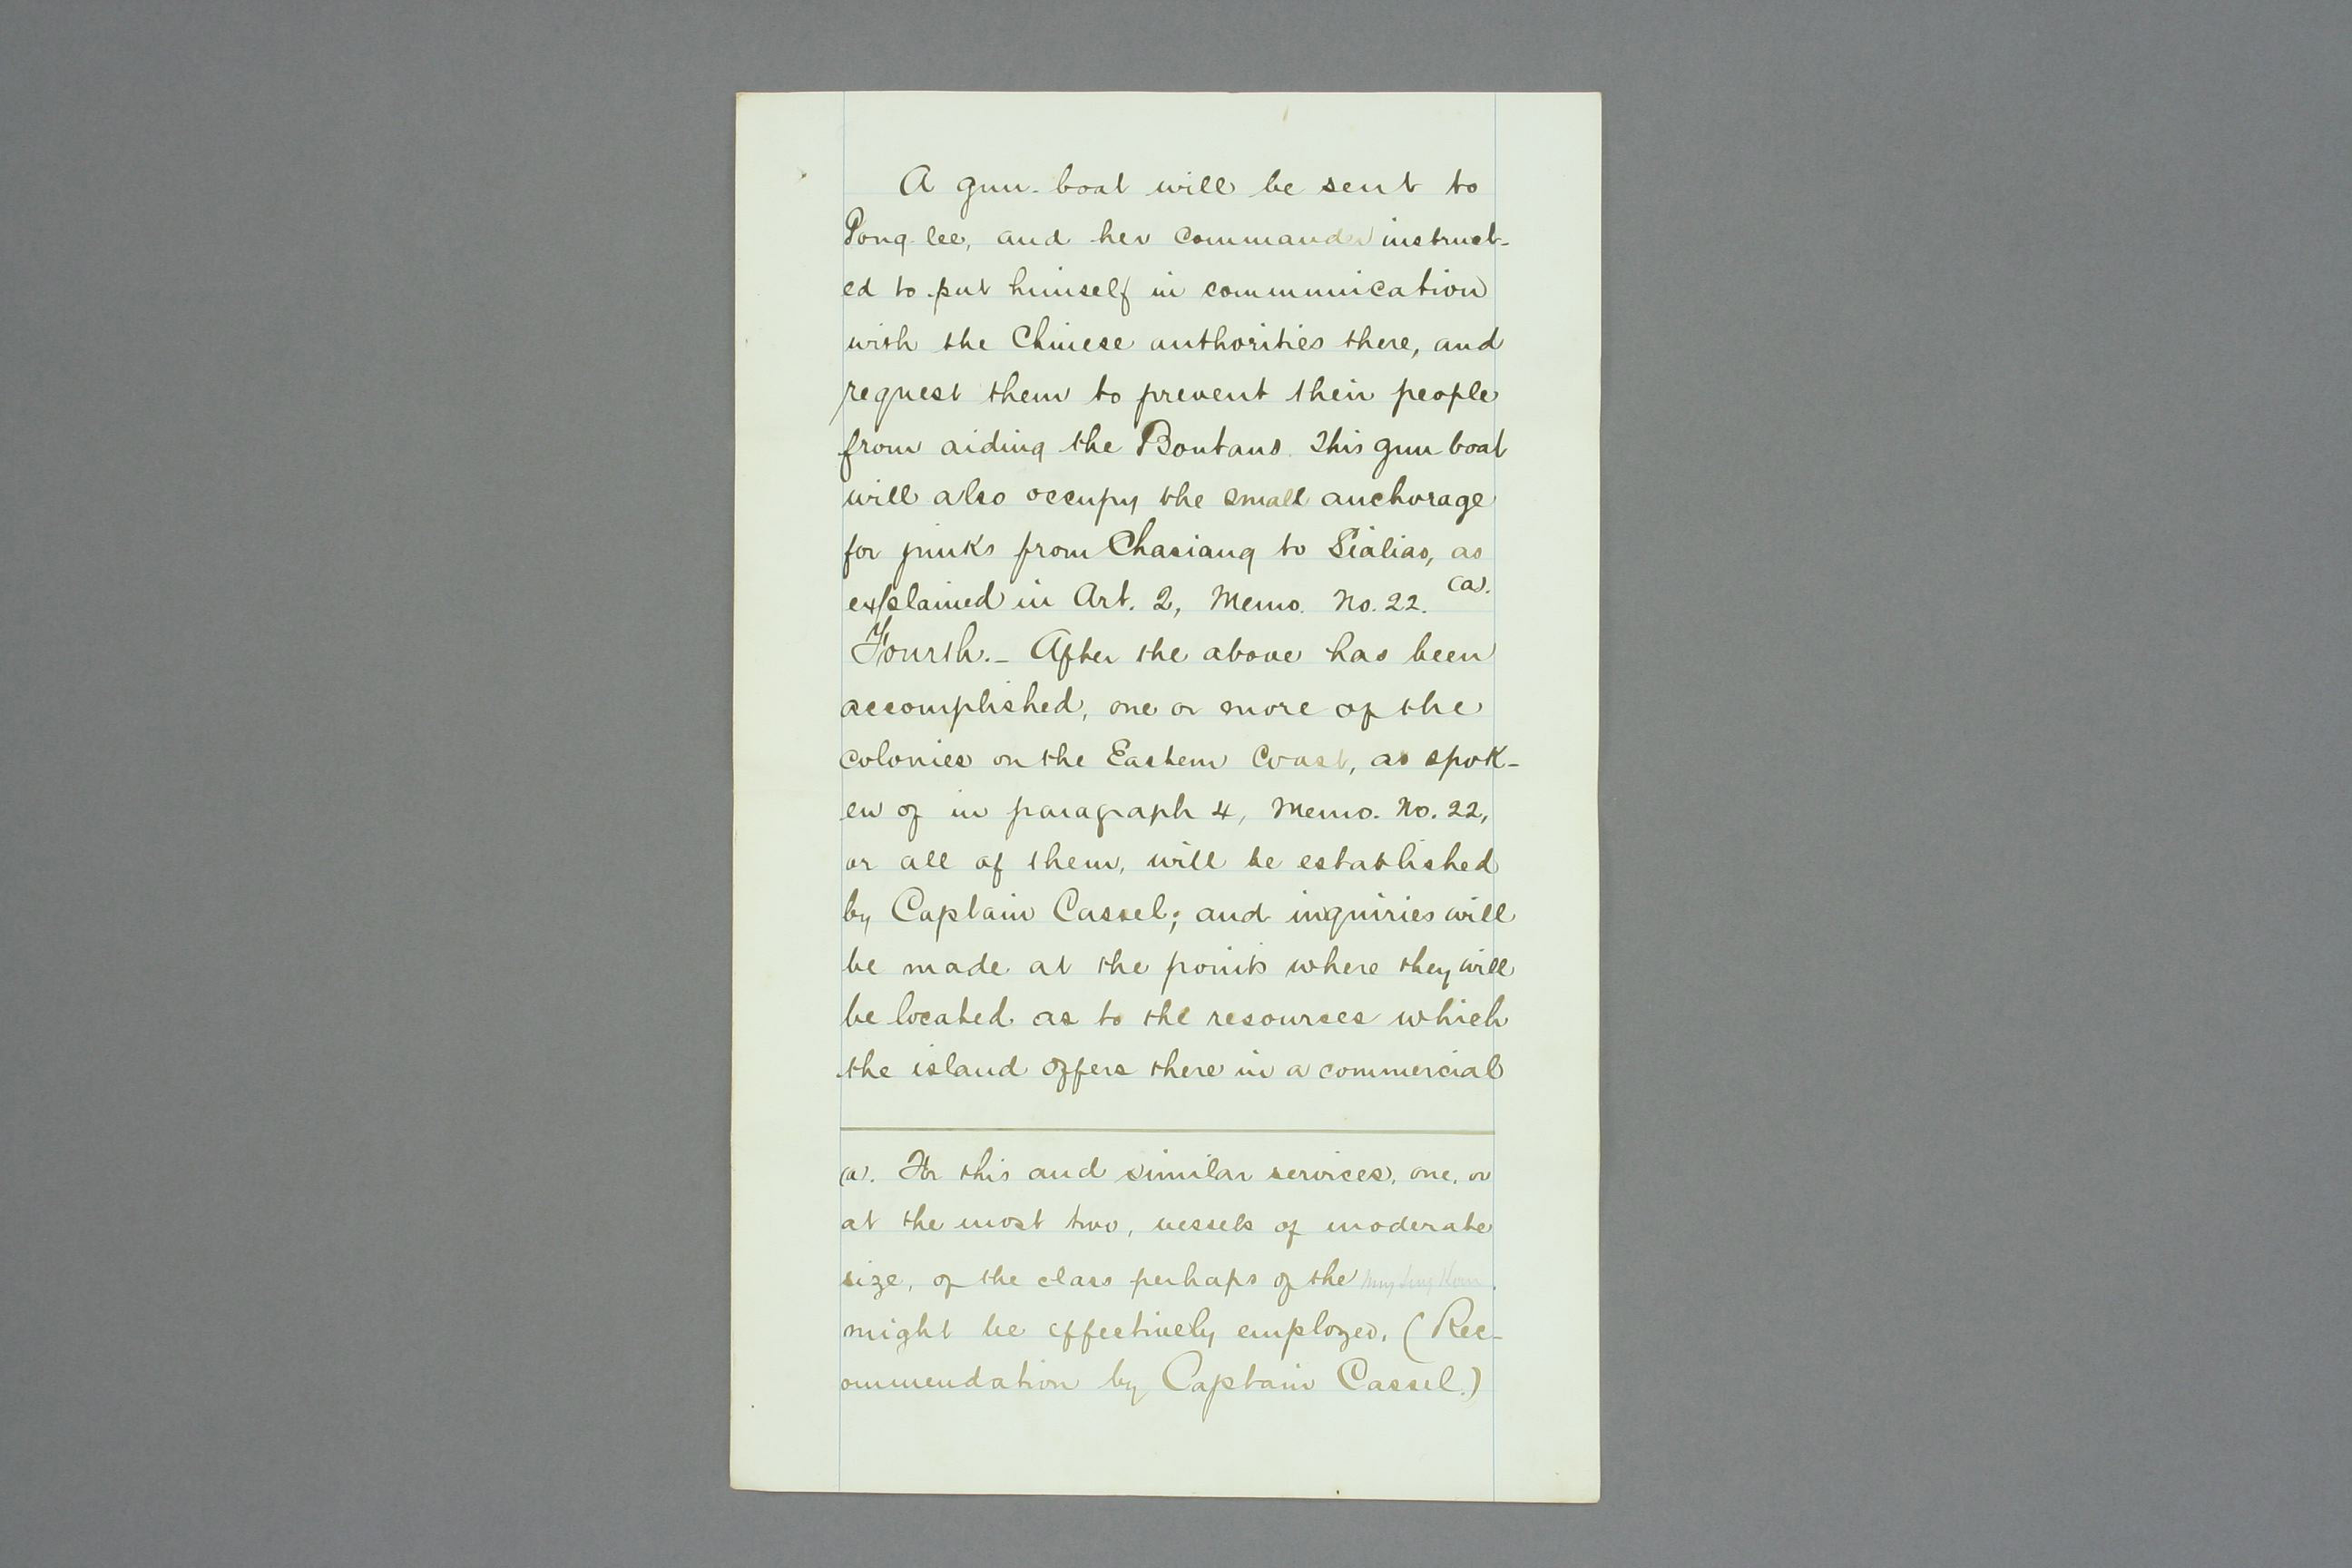 A gun-boat will be sent to
Pong lee, and her commander instruct-
ed to put himself in communication
with the Chinese authorities there, and
request them to prevent their people
from aiding the Boutans. This gun boat
will also occupy the small anchorage
for junks from Chasiang to Sialiao, as
explained in Art. 2, Memo. No. 22. (a).
Fourth.- After the above has been
accomplished, one or more of the
colonies on the Eastern Coast, as spok-
en of in paragraph 4, Memo. No. 22,
or all of them, will be established
by Captain Cassel; and inquiries will
be made at the points where they will
be located as to the resources which
the island offers there in a commercial
(a). For this and similar services, one, or
at the most two, vessels of moderate
size, of the class perhaps of the
might be effectively employed. (Rec-
ommendation by Captain Cassel.)